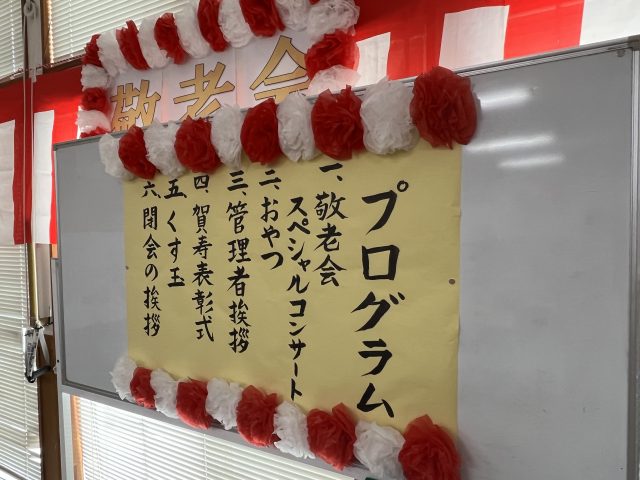 敬老会
プログラム
一、敬老会
スペシャルコンサート
二、おやつ
三、管理者挨拶
四、賀寿表彰式
五、くす玉
六、閉会の挨拶